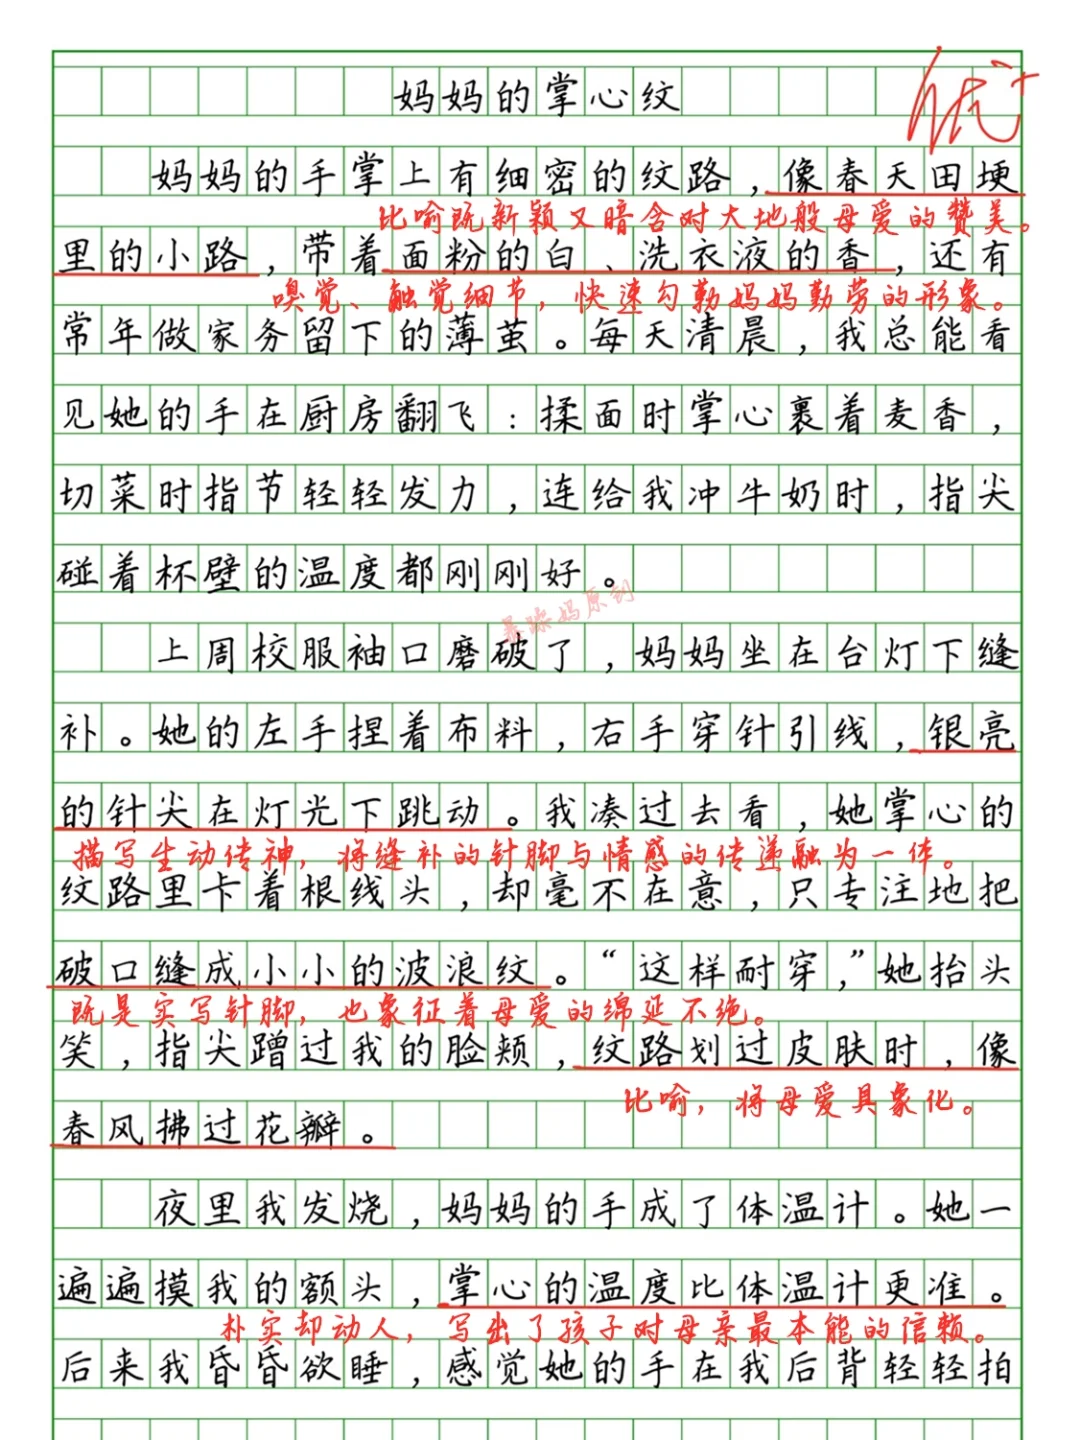 妈妈的掌心纹
优+
妈妈的手掌上有细密的纹路，像春天田埂
比喻既新颖又暗含对大地般母爱的赞美。
里的小路，带着面粉的白、洗衣液的香，还有
嗅觉、触觉细节，快速勾勒妈妈勤劳的形象。
常年做家务留下的薄茧。每天清晨，我总能看
见她的手在厨房翻飞：揉面时掌心裹着麦香，
切菜时指节轻轻发力，连给我冲牛奶时，指尖
碰着杯壁的温度都刚刚好。
暴躁妈原创
上周校服袖口磨破了，妈妈坐在台灯下缝
补。她的左手捏着布料，右手穿针引线，银亮
的针尖在灯光下跳动。我凑过去看，她掌心的
描写生动传神，将缝补的针脚与情感的传递融为一体。
纹路里卡着根线头，却毫不在意，只专注地把
破口缝成小小的波浪纹。“这样耐穿，”她抬头
既是实写针脚，也象征着母爱的绵延不绝。
笑，指尖蹭过我的脸颊，纹路划过皮肤时，像
比喻，将母爱具象化。
春风拂过花瓣。
夜里我发烧，妈妈的手成了体温计。她一
遍遍摸我的额头，掌心的温度比体温计更准。
朴实却动人，写出了孩子对母亲最本能的信赖。
后来我昏昏欲睡，感觉她的手在我后背轻轻拍